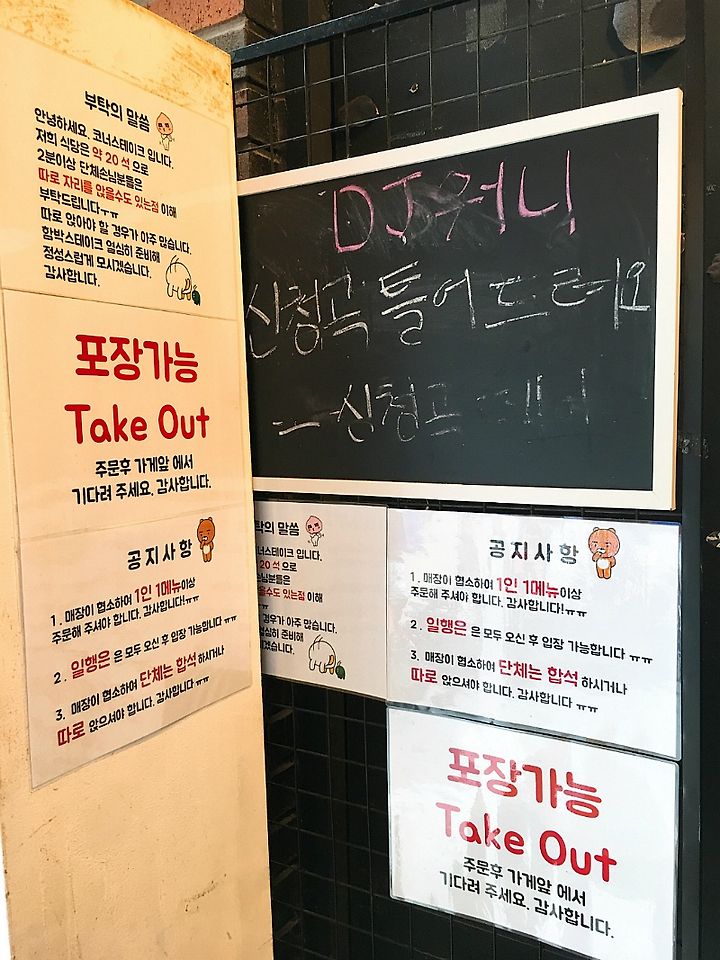 부탁의 말씀
안녕하세요. 코너스테이크 입니다.
저희 식당은 약 20 석 으로
2분이상 단체손님분들은
따로 자리를 앉을수도 있는점 이해
부탁드립니다ㅜㅠ
따로 앉아야 할 경우가 아주 많습니다.
함박스테이크 열심히 준비해
정성스럽게 모시겠습니다.
감사합니다.
포장가능
Take Out
주문후 가게앞 에서
기다려 주세요. 감사합니다.
공지사항
1 . 매장이 협소하여 1인 1메뉴이상
주문해 주셔야 합니다. 감사합니다!ㅠㅠ
2 . 일행은 은 모두 오신 후 입장 가능합니다 ㅠㅠ
3. 매장이 협소하여 단체는 합석 하시거나
따로 앉으셔야 합니다. 감사합니다 ㅠㅠ
DJ워니
신청곡 틀어드려요
ㅡ신청곡
탁의 말씀
너스테이크 입니다.
20 석 으로
님분들은
을수도 있는점 이해
ㅠ
경우가 아주 많습니다.
심히 준비해
겠습니다.
공지사항
1 . 매장이 협소하여 1인 1메뉴이상
주문해 주셔야 합니다. 감사합니다!ㅠㅠ
2. 일행은 은 모두 오신 후 입장 가능합니다 ㅠㅠ
3. 매장이 협소하여 단체는 합석 하시거나
따로 앉으셔야 합니다. 감사합니다 ㅠㅠ
포장가능
Take Out
주문후 가게앞 에서
기다려 주세요. 감사합니다.